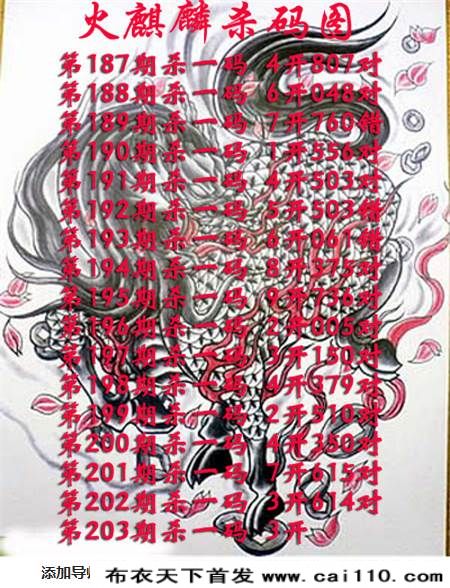 火麒麟杀码图
第187期杀一码 4开807对
第188期杀一码 6开048对
第189期杀一码 7开760错
第190期杀一码 1开556对
第191期杀一码 4开503对
第192期杀一码 5开503错
第193期杀一码 6开061错
第194期杀一码 8开375对
第195期杀一码 9开736对
第196期杀一码 2开005对
第197期杀一码 3开150对
第198期杀一码 4开379对
第199期杀一码 2开510对
第200期杀一码 4开350对
第201期杀一码 7开615对
第202期杀一码 3开614对
第203期杀一码 3开
添加导
布衣天下首发 www.cai110.com